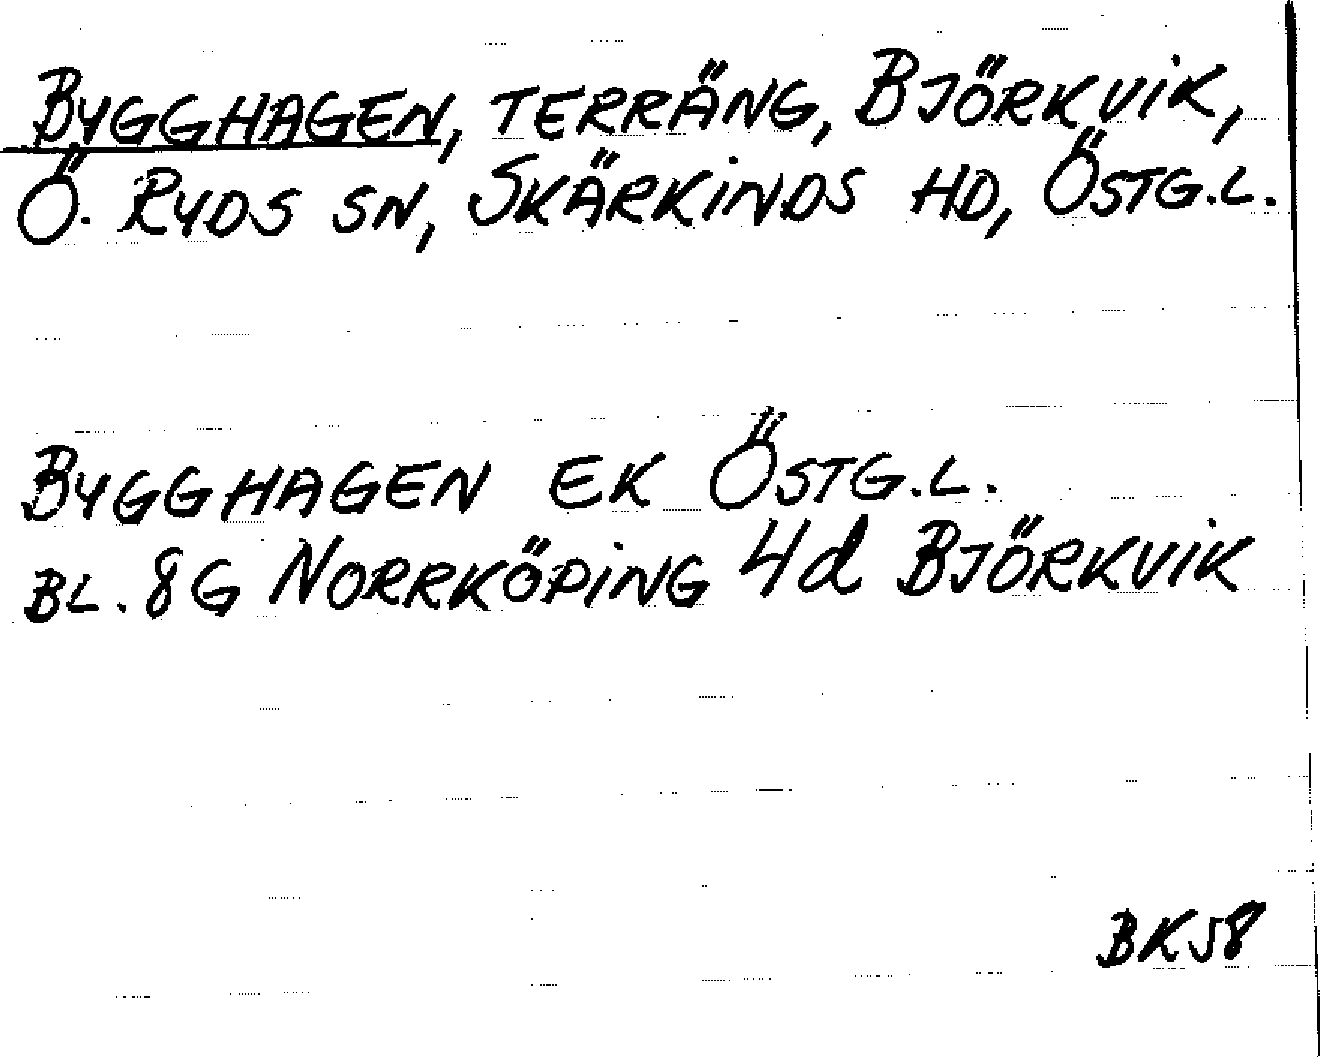 BYGGHAGEN, TERRÄNG, BJÖRKVIK,
Ö. RYDS SN, SKÄRKINDS HD, ÖSTG.L.
BYGGHAGEN EK ÖSTG.L.
BL. 8G NORRKÖPING 4d BJÖRKVIK
BK58